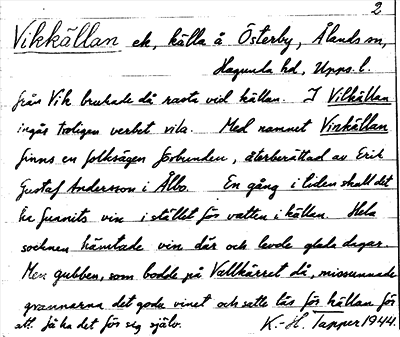 2
Vikkällan ek, källa å Österby, Ålands sn,
Hagunda hd, Upps. l.
från Vik brukade då rasta vid källan. I Vilkällan
ingår troligen verbet vila. Med namnet Vinkällan
finns en folksägen förbunden, återberättad av Erik
Gustaf Andersson i Ålbo. En gång i tiden skall det
ha funnits vin i stället för vatten i källan. Hela
socknen hämtade vin där och levde glada dagar.
Men gubben, som bodde på Vallkärret då, missunnade
grannarna det goda vinet och satte lås för källan för
att få ha det för sig själv. K.-H. Tapper 1944.